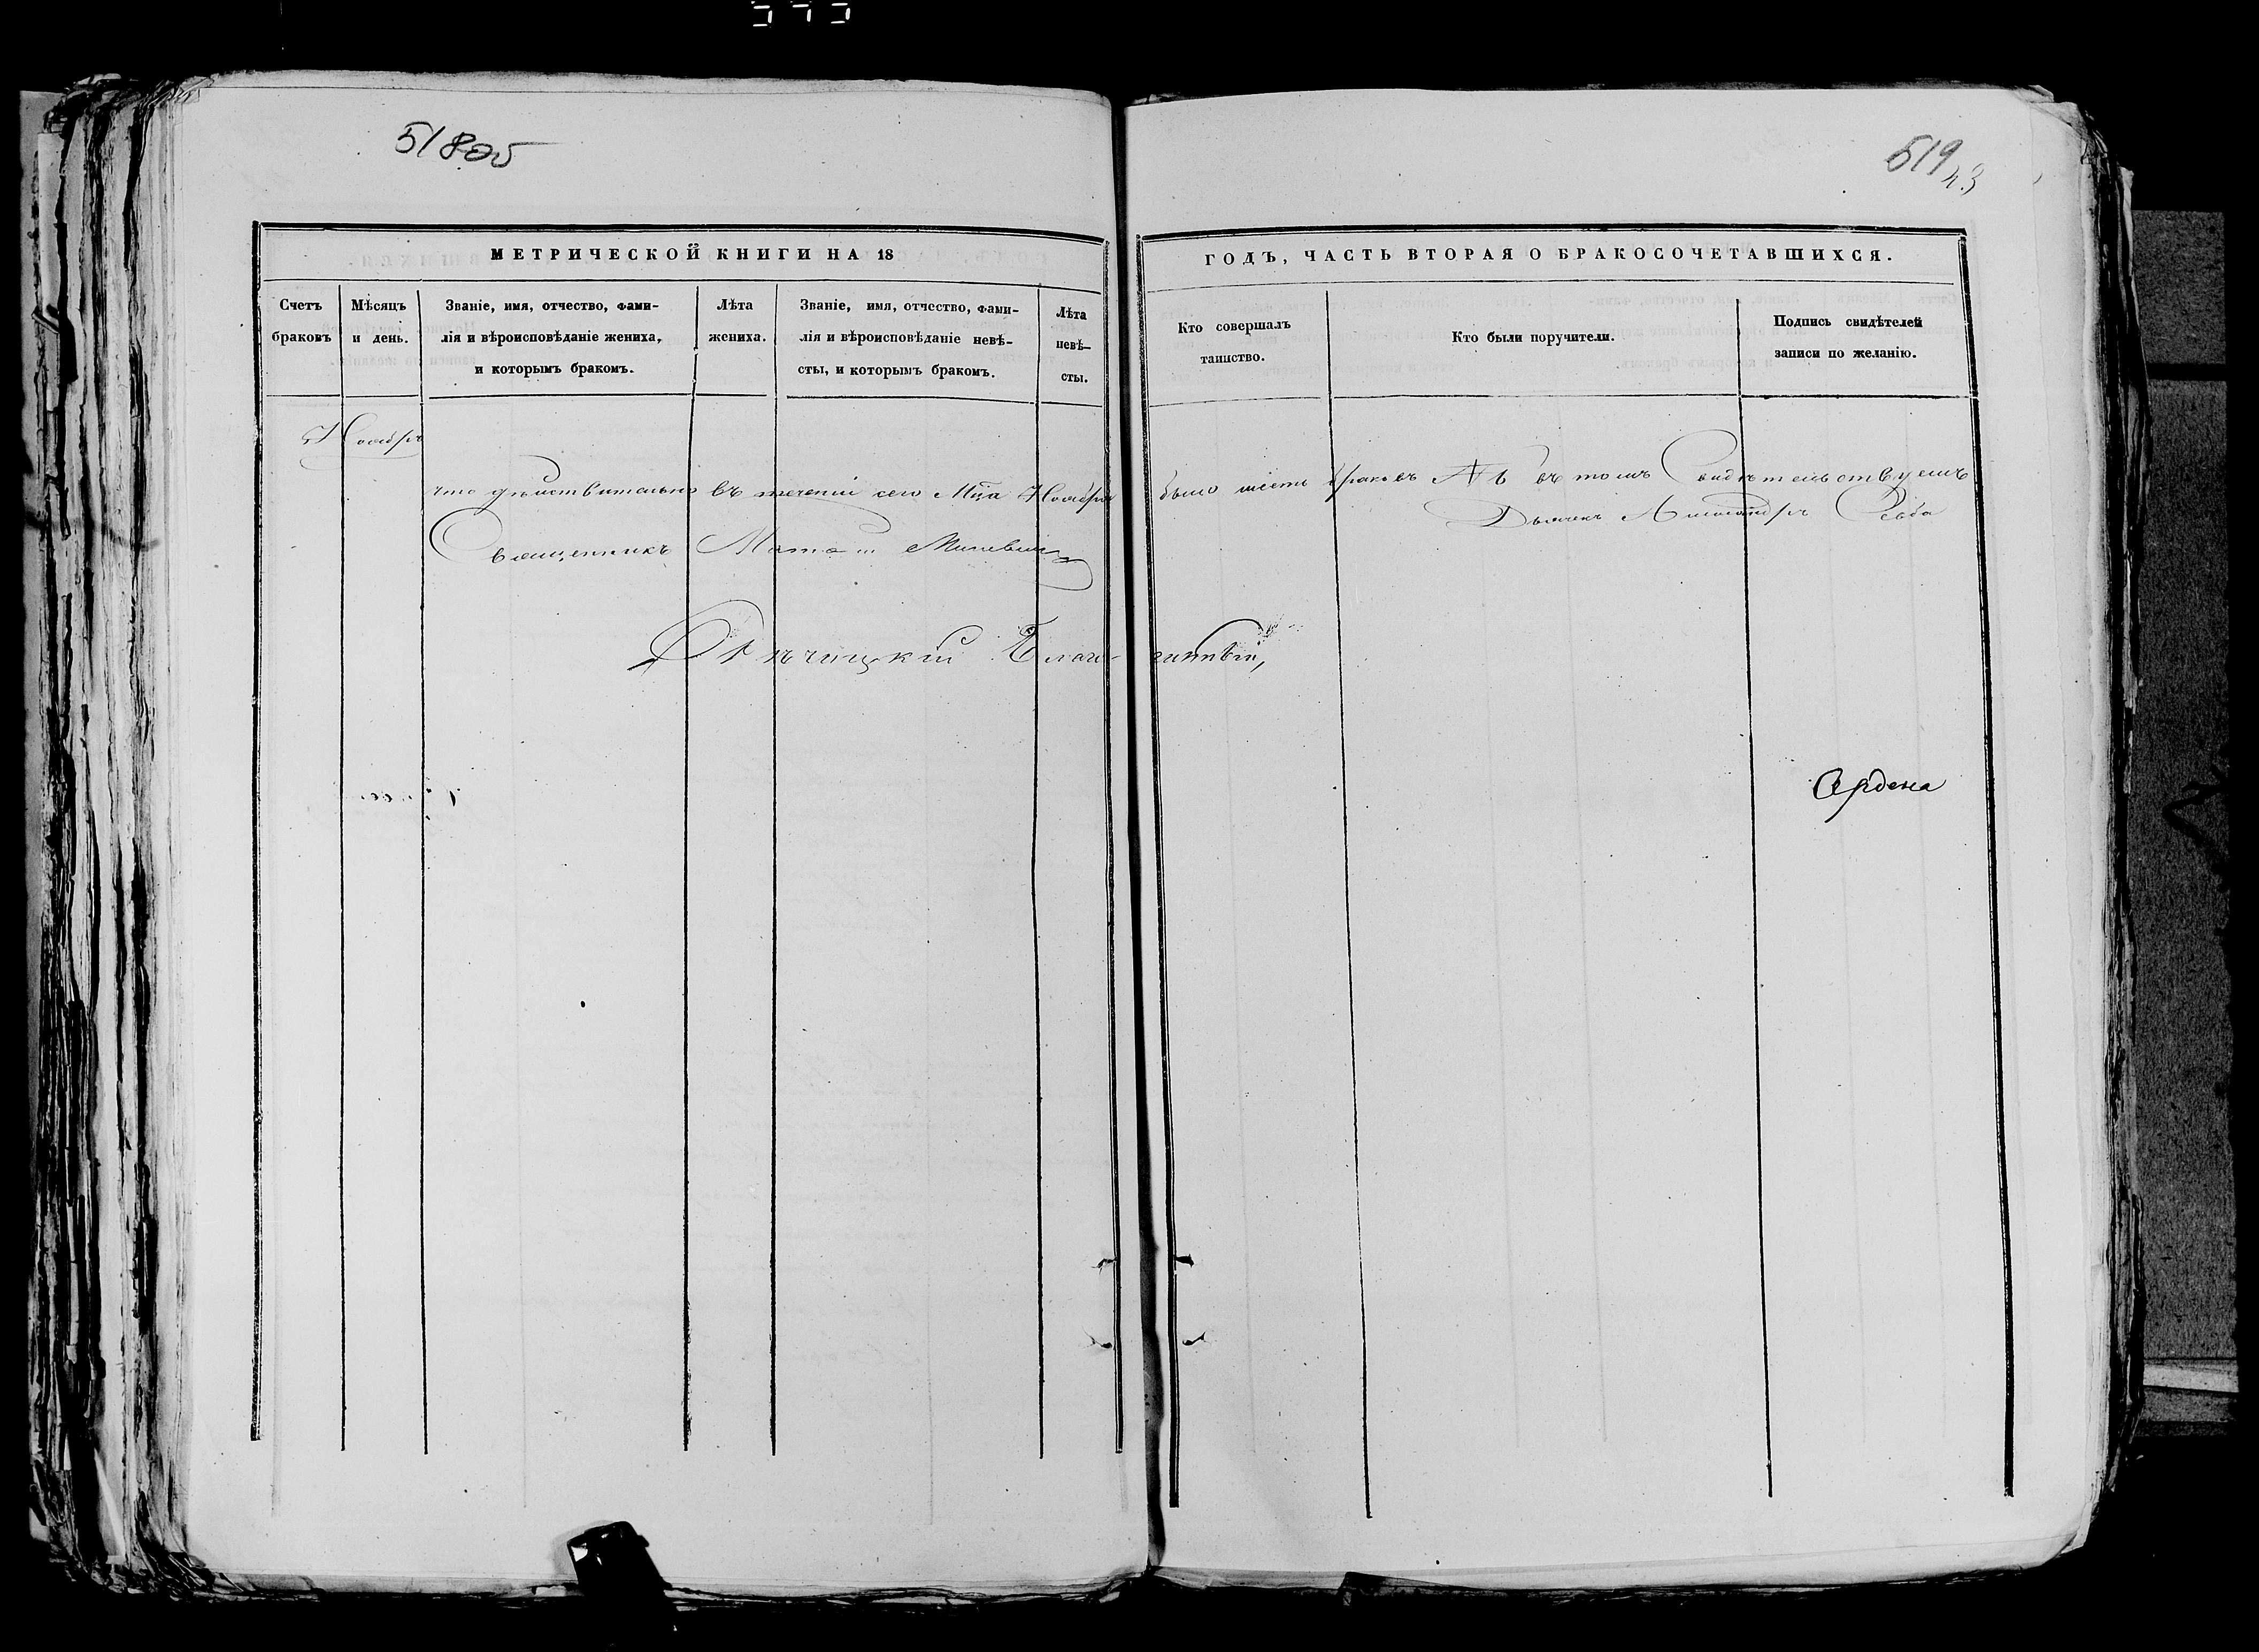 518об
519
43
МЕТРИЧЕСКОЙ КНИГИ НА 18
ГОДЪ, ЧАСТЬ ВТОРАЯ О БРАКОСОЧЕТАВШИХСЯ.
Счетъ
браковъ
Мѣсяцъ
и день.
Званіе, имя, отчество, фами-
лія и вѣроисповѣданіе жениха,
и которымъ бракомъ.
Лѣта
жениха.
Званіе, имя, отчество, фами-
лія и вѣроисповѣданіе невѣ-
сты, и которымъ бракомъ.
Лѣта
невѣ-
сты.
Кто совершалъ
таинство.
Кто были поручители.
Подпись свидѣтелей
записи по желанію.
Ноябрь
что дѣйствительно въ теченіи сего Мца Ноября было шесть браковъ № 6 въ томъ Свидѣтельствуемъ
Священникъ
Дьячекъ
Рѣчицкій Благочинный,